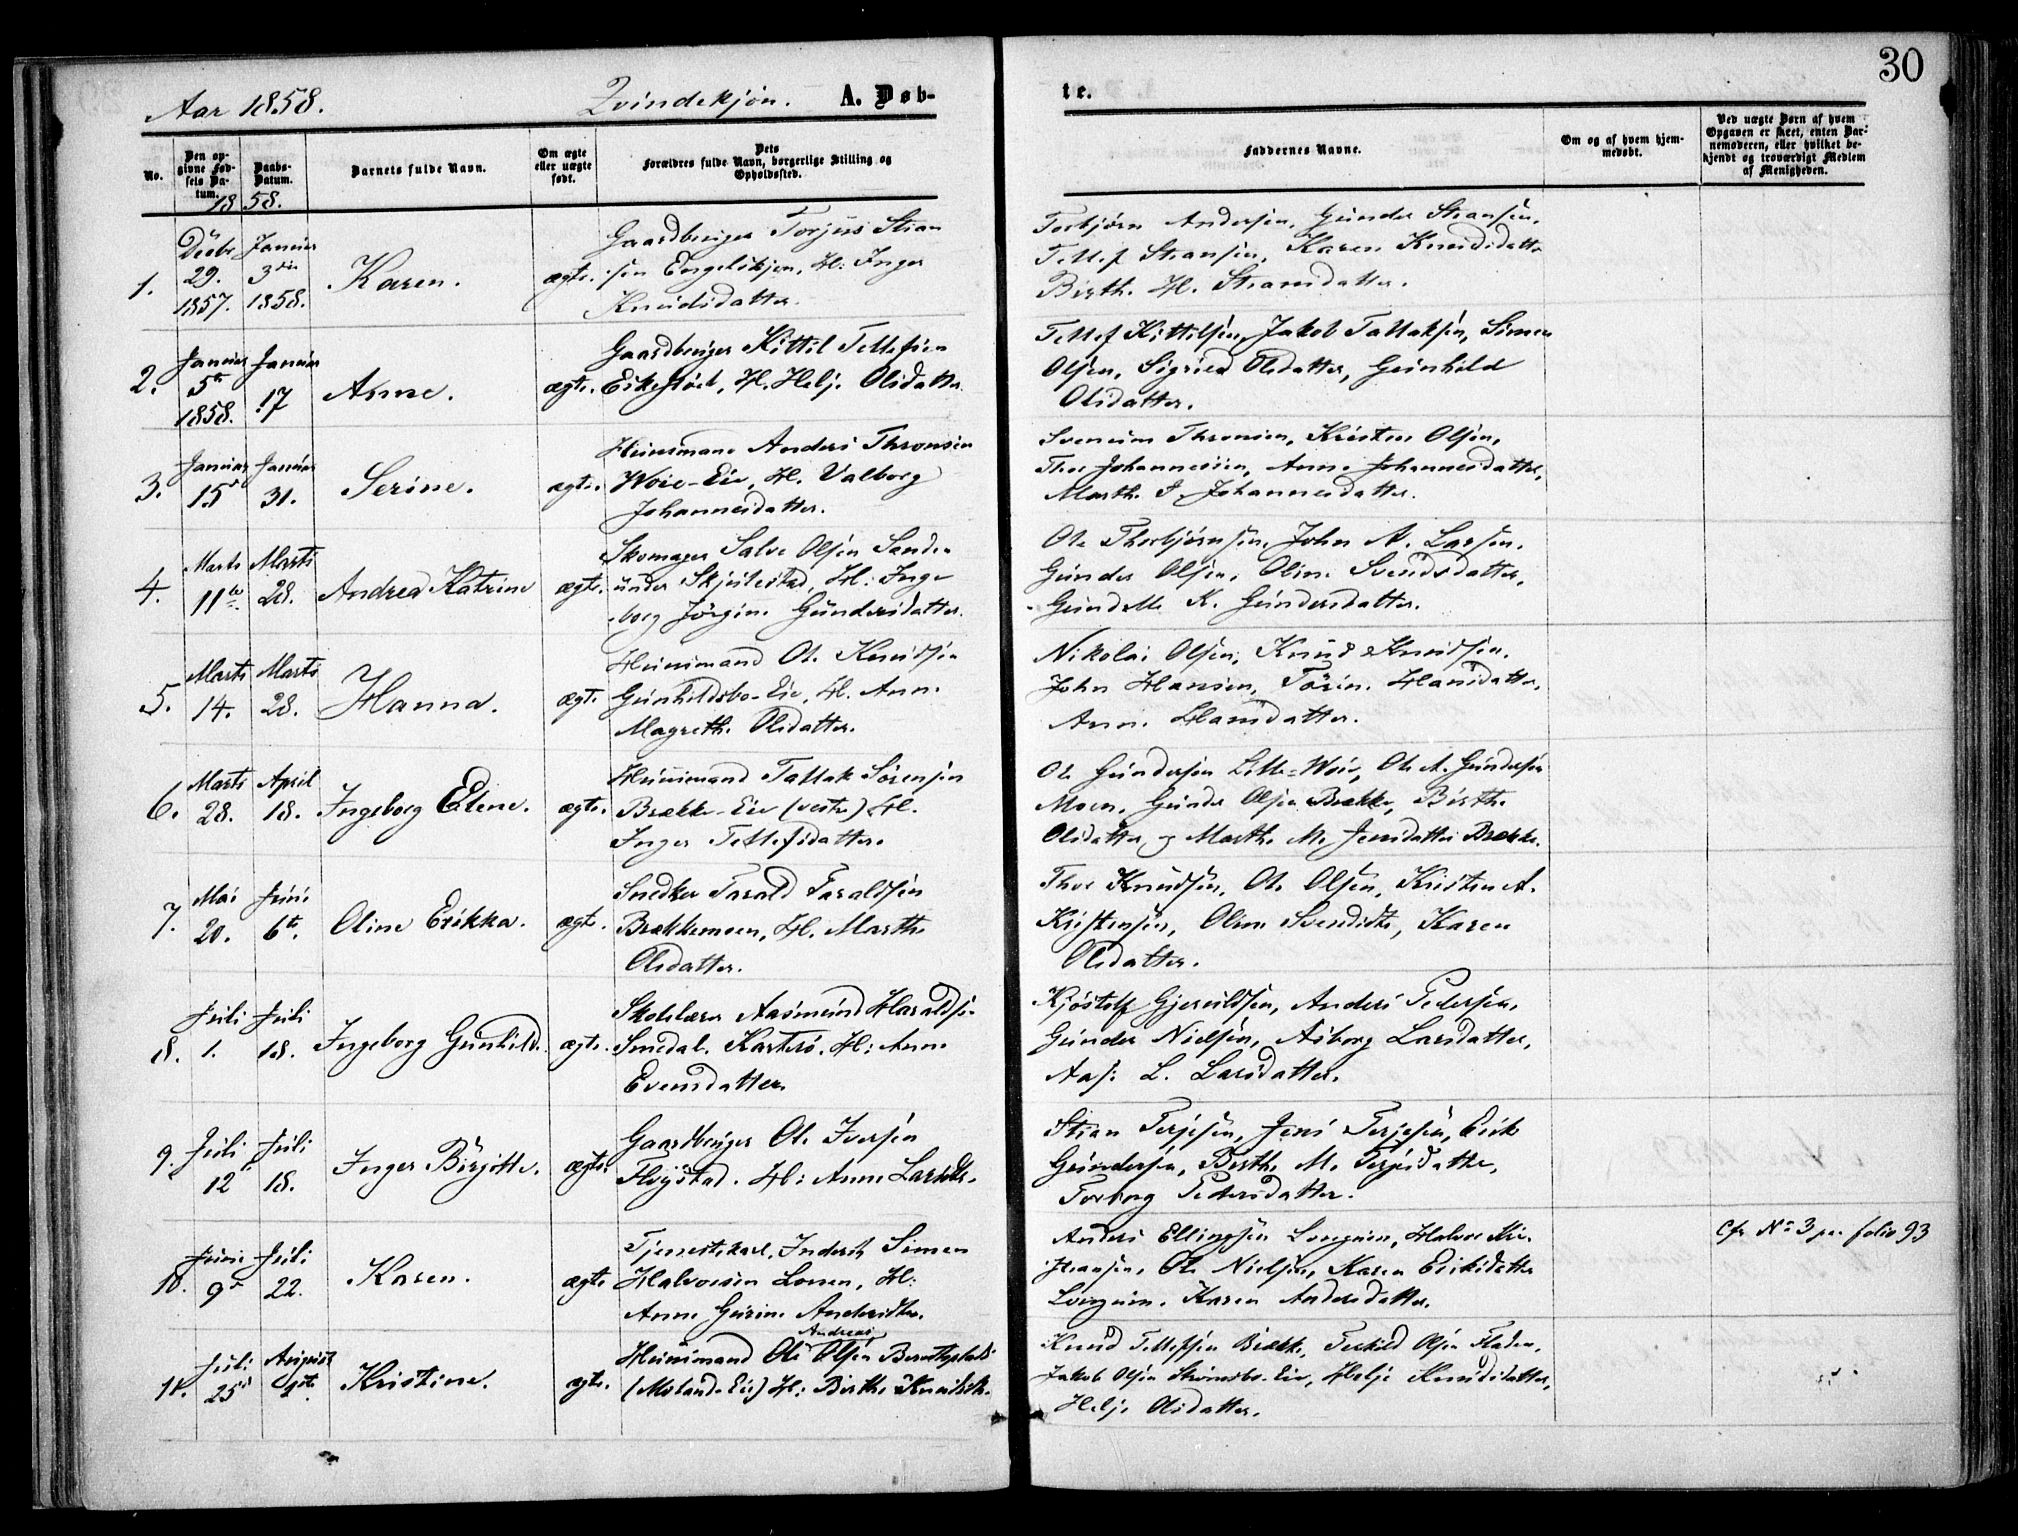 30
Aar 1858. Qvindekjøn. A. Døb-
te.
No.
Den op-
givne Fød-
sels Da-
tum.
Daabs-
Datum.
Barnets fulde Navn.
Om ægte
eller uægte
født.
Dets
Forældres fulde Navn, borgerlige Stilling og
Opholdssted.
Faddernes Navne.
Om og af hvem hjem-
medøbt.
Ved uægte Børn af hvem
Opgaven er skeet, enten Bar-
nemoderen, eller hvilket be-
kjendt og troværdigt Medlem
af Menigheden.
1858.
1.
Decbr
29.
1857.
Januar
3die
1858.
Karen.
ægte.
Gaardbruger Torjus Stian
sen Engelskjøn, H: Inger
Knudsdatter.
Torbjørn Andersen, Gunder Stiansen,
Tellef Stiansen, Karen Knudsdatter
Birthe H. Stiansdatter.
2.
Januar
5te
1858.
Januar
17
Anne.
ægte.
Gaardbruger Kittil Tellefsen
Eikestøel, H. Helje Olsdatter.
Tellef Kittilsen, Jakob Tallaksen, Simen
Olsen, Sigried Olsdatter, Gunhild
Olsdatter.
3.
Januar
15de
Januar
31.
Serine.
ægte.
Huusmand Anders Thronsen
Woie-Eie, H. Valborg
Johannesdatter.
Svenum Thronsen, Kristen Olsen,
Thor Johannessen, Anne Johannesdatter,
Marthe J. Johannesdatter.
4.
Marts
11te
Marts
28.
Andrea Katrine
ægte.
Skomager Salve Olsen Sande-
under Skjulestad, H: Inge-
borg Jørgine Gundersdatter.
Ole Thorbjørnsen, John A. Larsen,
Gunder Olsen, Oline Svendsdatter,
K. Gundersdatter.
5.
Marts
14.
Marts
28.
Hanna.
ægte.
Huusmand Ole Knudsen
Gunhildsbo-Eie, H. Anne
Magrethe Olsdatter.
Nikolai Olsen, Knud Knudsen,
John Hansen, Hansdatter,
Anne Hansdatter.
6.
Marts
28.
April
18.
Ingeborg Elene.
ægte.
Huusmand Tallak Sørensen
Brække-Eie (vestre) H.
Inger Tellefsdatter.
Ole Gundersen Lille-Woie, Ole A. Gundersen
Moen, Gunder Olsen Brække, Birthe
Olsdatter og Marthe M. Jensdatter Brække.
7.
Mai
20.
Juni
6te.
Oline Erikka.
ægte.
Snedker Tarald Taraldsen
Brækkemoen, H. Marthe
Olsdatter.
Thor Knudsen, Ole Olsen, Kristen A.
Kristensen, Oline Svendsdtr, Karen
Olsdatter.
8.
Juli
1.
Juli
18.
Ingeborg Gunhild.
ægte.
Skolelærer Aasmund Haraldsen
Smedal. H: Anne
Evensdatter
Kjøstolf Gjeruldsen, Anders Pedersen,
Gunder Nielsen, Asborg Larsdatter,
Aase L. Larsdatter.
9.
Juli
12
Juli
18.
Inger Birgitte.
ægte.
Gaardbruger Ole Iversen
Fløistad. H: Anne Larsdtr.
Stian Terjesen, Jens Terjesen, Erik
Gundersen, Birthe M. Terjesdatter,
Torborg Pedersdatter.
10.
Juni
9de
Juli
22.
Karen.
ægte
Tjenestekarl, Inderst Simen
Halvorsen Lonen, H:
Anne Gurine Andersdtr.
Anders Ellingsen Longum, Halvor Kri-
stiansen, Ole Nielsen, Karen Eriksdatter
Longum. Karen Andersdatter.
Cfr No 3 pa folio 93
11.
Juli
25de
August
1ste
Kristine.
ægte.
Andreas
Huusmand Ole Olsen
(Molands-Eie) H: Birthe Knudsdtr.
Knud Tellefsen Brække, Terkild Olsen Fladen,
Jakob Olsen Eie, Helje Knudsdatter,
Helje Olsdatter.